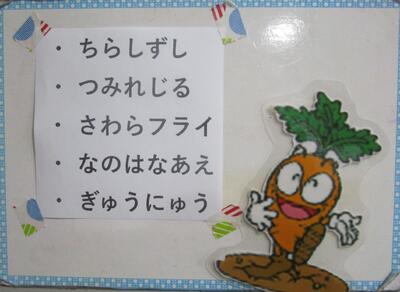 ・ちらしずし
・つみれじる
・さわらフライ
・なのはなあえ
・ぎゅうにゅう